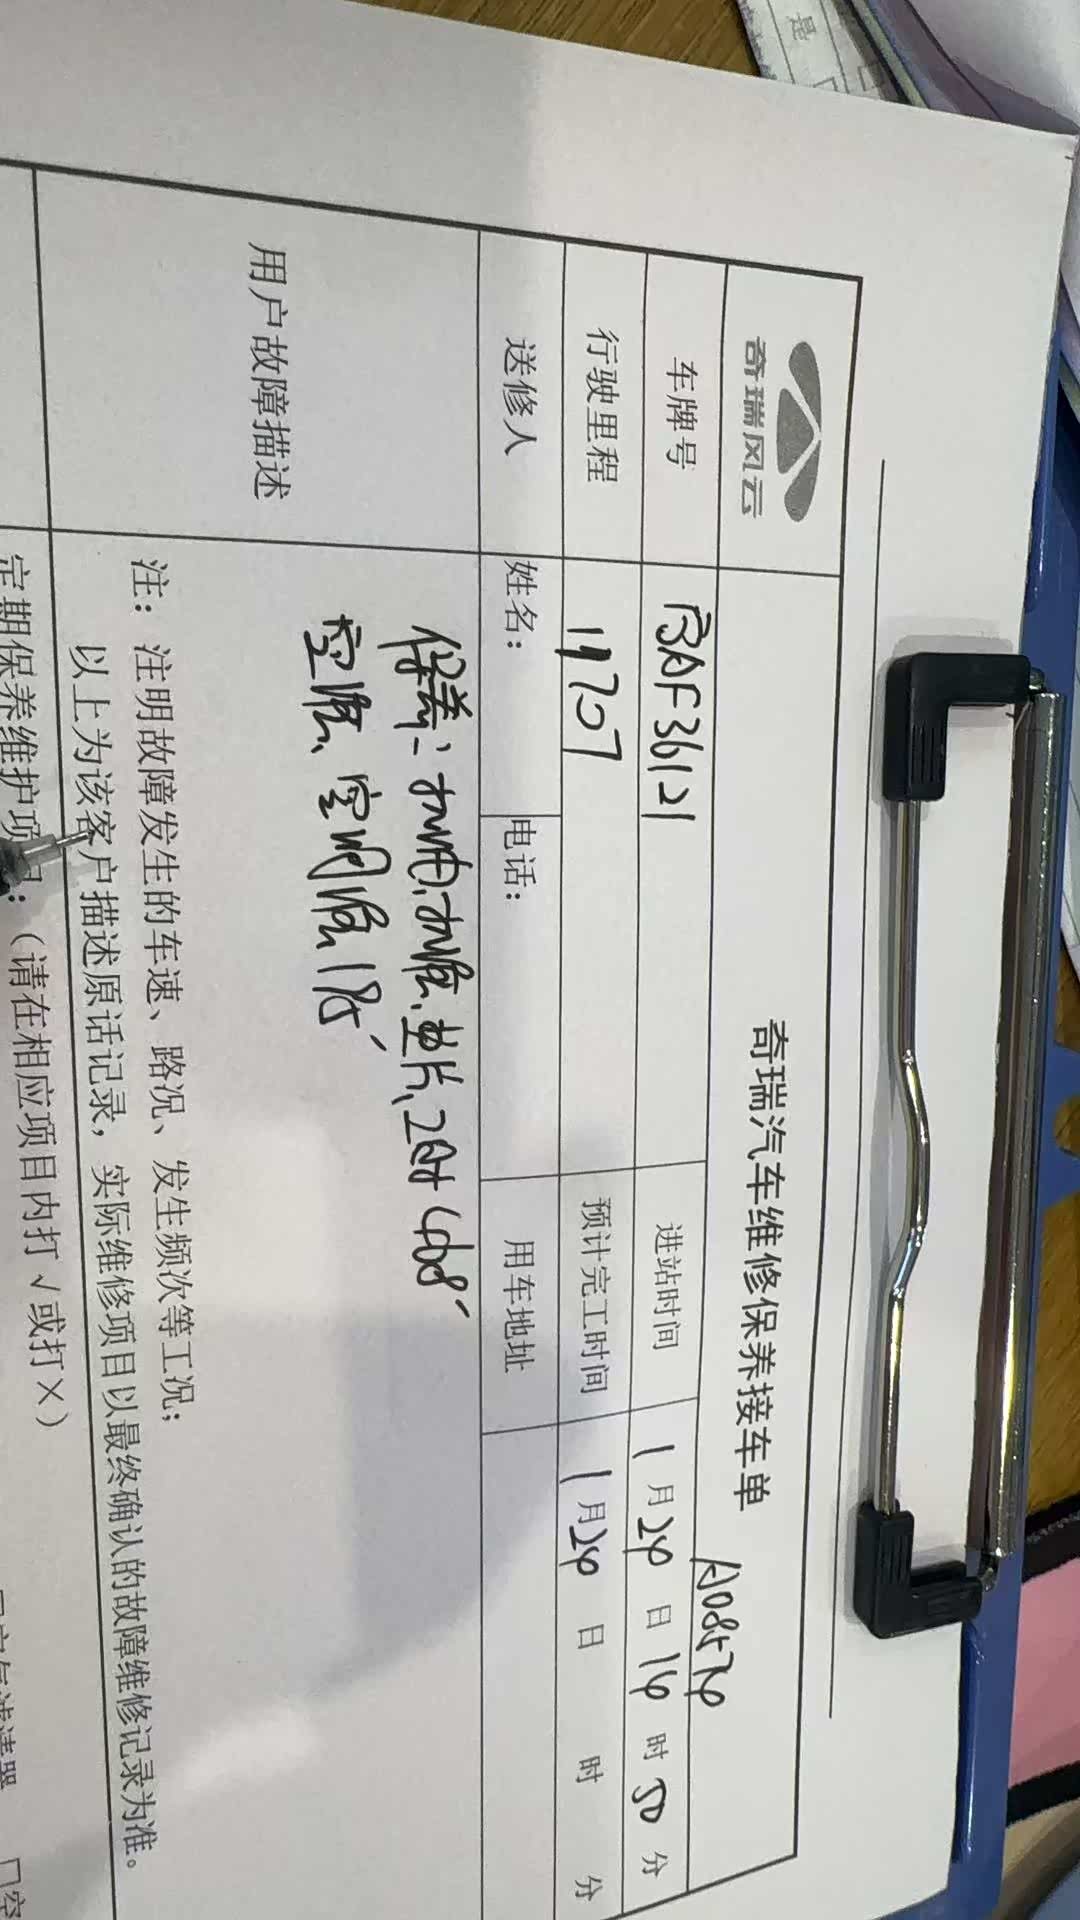 奇瑞风云
奇瑞汽车维修保养接车单
车牌号 BAF36121 进站时间 1月24日16时50分
行驶里程 11707 预计完工时间 1月24日 时 分
送修人 姓名： 电话： 用车地址
用户故障描述
保养：机油、机滤、垫片、工时
空滤、空调滤
注：注明故障发生的车速、路况、发生频次等工况；
以上为该客户描述原话记录，实际维修项目以最终确认的故障维修记录为准。
定期保养维护项目：（请在相应项目内打√或打×）